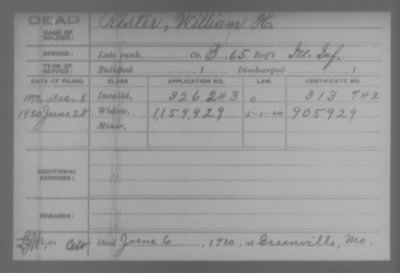 DEAD
NAME OF SOLDIER: Rister, William H.
SERVICE: Late rank, Co. B, 65 Reg't Ill. Inf.
TERM OF SERVICE: Enlisted , 1 Discharged , 1
DATE OF FILING. CLASS APPLICATION NO. LAW. CERTIFICATE NO.
1879, Dec. 8 Invalid, 326243 0 313,742
1920 June 28 Widow, 1,159,929 5-1-20 905929
Minor,
ADDITIONAL SERVICES:
REMARKS:
Died June 6, 1920, at Greenville, Mo.